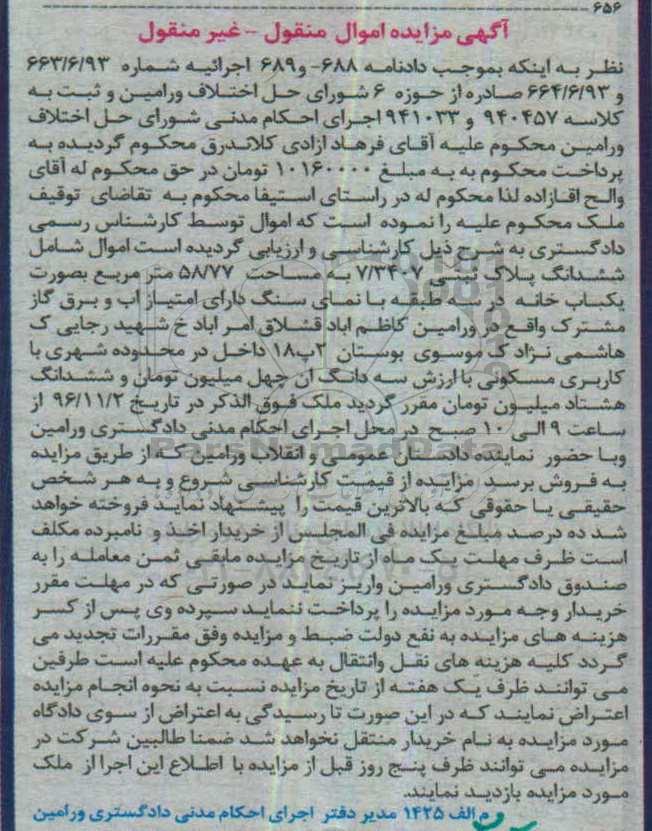 ۶۵۶
آگهی مزایده اموال منقول - غیر منقول
نظر به اینکه بموجب دادنامه ۶۸۸- و۶۸۹ اجرائیه شماره ۶۶۳/۶/۹۳
و ۶۶۴/۶/۹۳ صادره از حوزه ۶ شورای حل اختلاف ورامین و ثبت به
کلاسه ۹۴۰۴۵۷ و ۹۴۱۰۳۳ اجرای احکام مدنی شورای حل اختلاف
ورامین محکوم علیه آقای فرهاد ازادی کلاندرق محکوم گردیده به
پرداخت محکوم به به مبلغ ۱۰۱۶۰۰۰۰ تومان در حق محکوم له آقای
والح اقازاده لذا محکوم له در راستای استیفا محکوم به تقاضای توقیف
ملک محکوم علیه را نموده است که اموال توسط کارشناس رسمی
دادگستری به شرح ذیل کارشناسی و ارزیابی گردیده است اموال شامل
ششدانگ پلاک ثبتی ۷/۳۴۰۷ به مساحت ۵۸/۷۷ متر مربع بصورت
یکباب خانه در سه طبقه با نمای سنگ دارای امتیاز اب و برق گاز
مشترک واقع در ورامین کاظم اباد قشلاق امر اباد خ شهید رجایی ک
هاشمی نژاد ک موسوی بوستان ۲پ۱۸ داخل در محدوده شهری با
کاربری مسکونی با ارزش سه دانگ ان چهل میلیون تومان و ششدانگ
هشتاد میلیون تومان مقرر گردید ملک فوق الذکر در تاریخ ۹۶/۱۱/۲ از
ساعت ۹ الی ۱۰ صبح در محل اجرای احکام مدنی دادگستری ورامین
وبا حضور نماینده دادستان عمومی و انقلاب ورامین که از طریق مزایده
به فروش برسد مزایده از قیمت کارشناسی شروع و به هر شخص
حقیقی یا حقوقی که بالاترین قیمت را پیشنهاد نماید فروخته خواهد
شد ده درصد مبلغ مزایده فی المجلس از خریدار اخذ و نامبرده مکلف
است ظرف مهلت یک ماه از تاریخ مزایده مابقی ثمن معامله را به
صندوق دادگستری ورامین واریز نماید در صورتی که در مهلت مقرر
خریدار وجه مورد مزایده را پرداخت ننماید سپرده وی پس از کسر
هزینه های مزایده به نفع دولت ضبط و مزایده وفق مقررات تجدید می
گردد کلیه هزینه های نقل وانتقال به عهده محکوم علیه است طرفین
می توانند ظرف یک هفته از تاریخ مزایده نسبت به نحوه انجام مزایده
اعتراض نمایند که در این صورت تا رسیدگی به اعتراض از سوی دادگاه
مورد مزایده به نام خریدار منتقل نخواهد شد ضمنا طالبین شرکت در
مزایده می توانند ظرف پنج روز قبل از مزایده با اطلاع این اجرا از ملک
مورد مزایده بازدید نمایند.
م الف ۱۴۲۵ مدیر دفتر اجرای احکام مدنی دادگستری ورامین